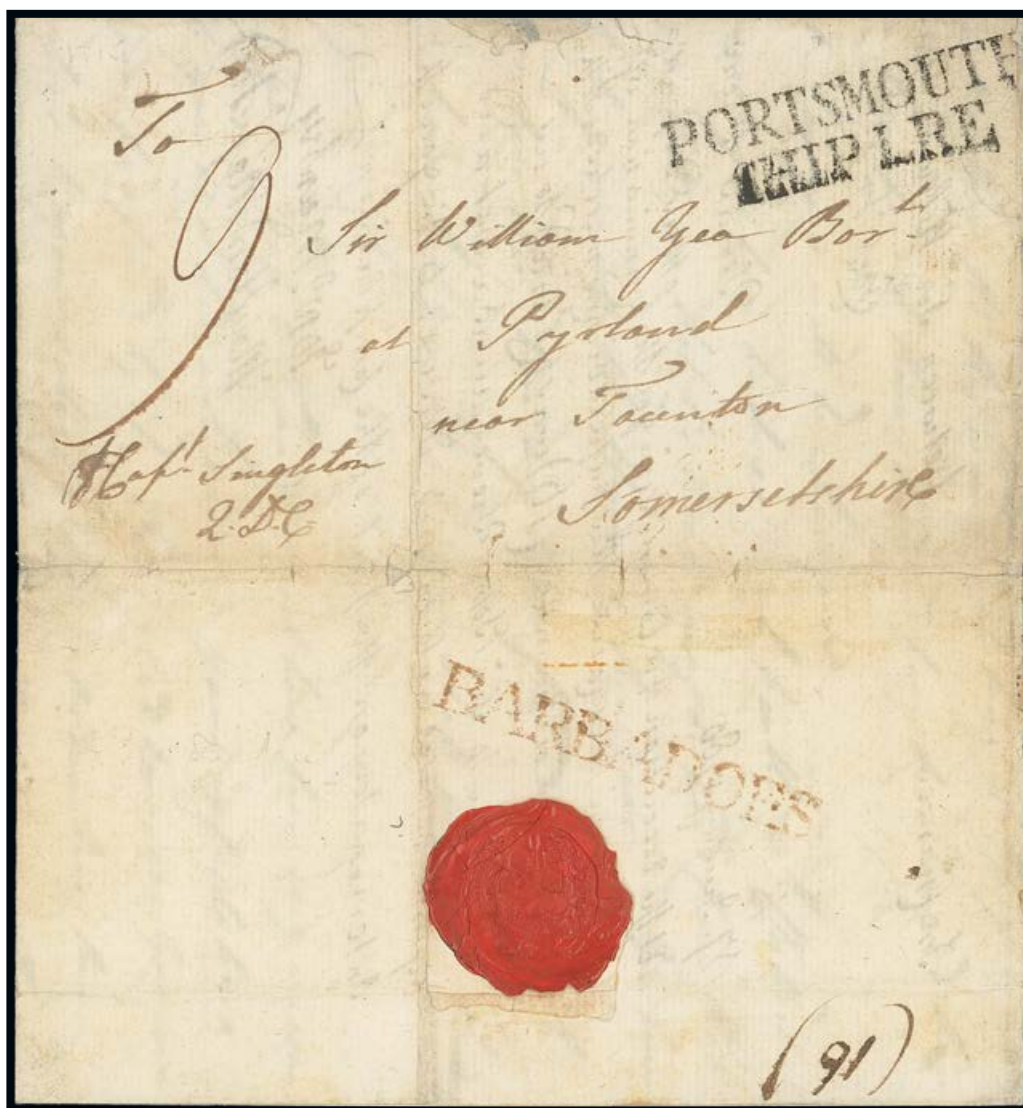 PORTSMOUTH
SHIP LRE
To
9
Sir William Yea Bart.
at Pyrland
near Taunton
Somersetshire
Capt. Singleton
Q. D. C
BARBADOES
(91)